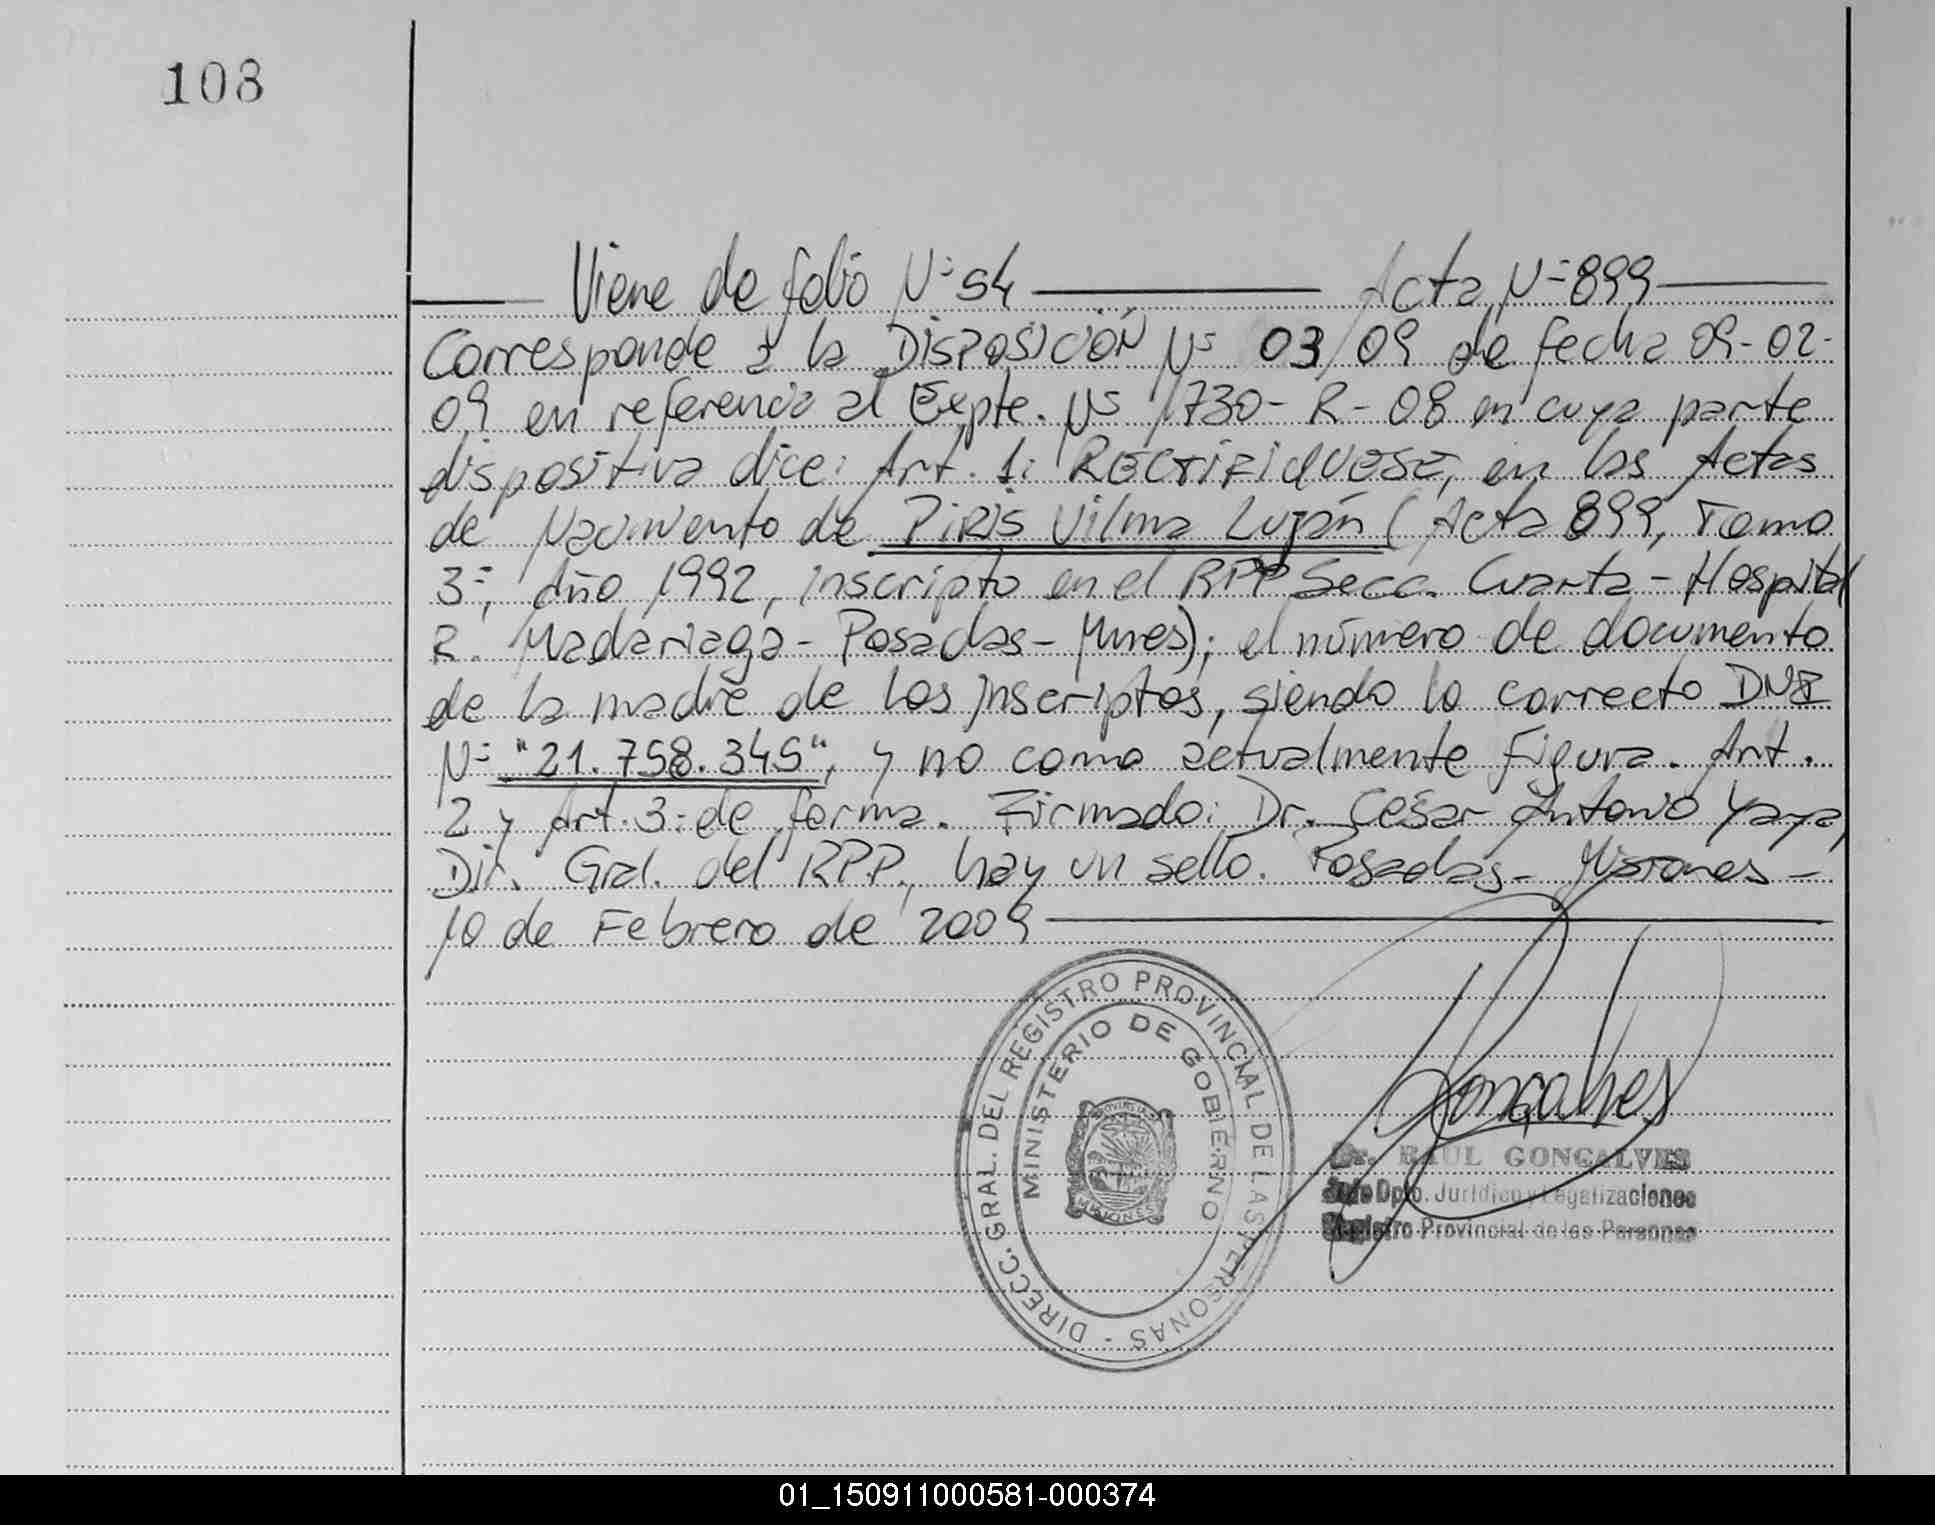 108
Viene de folio Nº 54 Acta Nº 899
Corresponde a la DISPOSICIÓN Nº 03/09 de fecha 09-02-
09 en referencia al Expte. Nº 1730-R-08 en cuya parte
dispositiva dice: Art. 1: RECTIFIQUESE, en las Actas
de Nacimiento de PIRIS Vilma Luján (Acta 899, Tomo
3º, Año 1992, inscripto en el RPP Secc. Cuarta - Hospital
R. Madariaga - Posadas - Mnes); el número de documento
de la madre de los inscriptos, siendo lo correcto DNI
Nº "21.758.345", y no como actualmente Figura. Art.
2 y Art. 3: de forma. Firmado: Dr. César Antonio Yaya,
Dir. Gral. del RPP, hay un sello. Posadas - Misiones -
10 de Febrero de 2009
DIRECC. GRAL. DEL REGISTRO PROVINCIAL DE LAS PERSONAS -
MINISTERIO DE GOBIERNO
PROVINCIA
MISIONES
Gonçalves
Dr. RAUL GONÇALVES
Dpto. Jurídico y Legalizaciones
Registro Provincial de las Personas
01_150911000581-000374